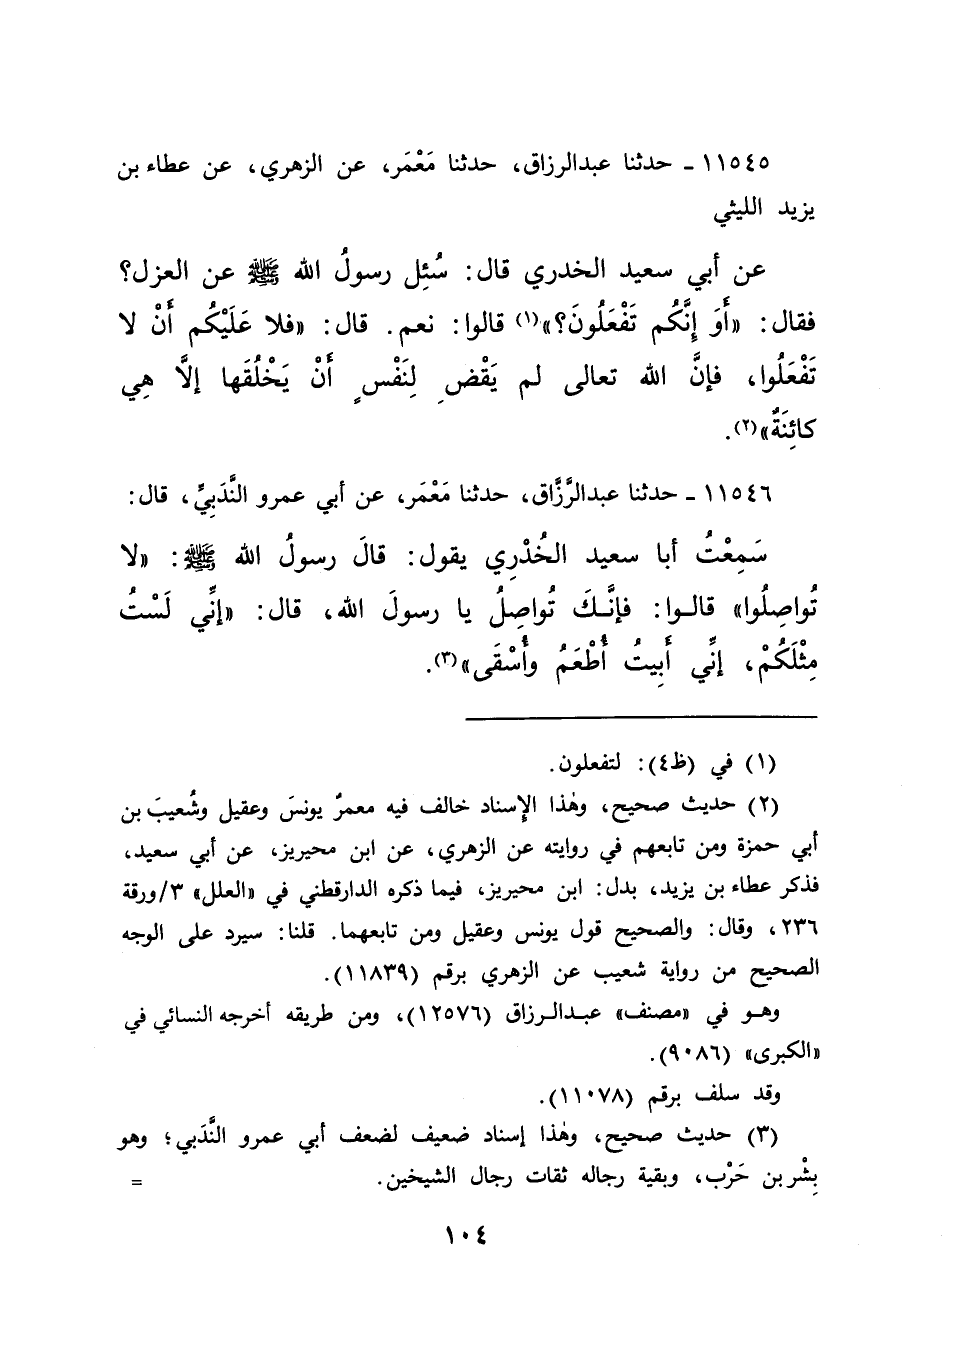 ١١٥٤٥ ـ حدثنا عبدالرزاق، حدثنا مَعْمَر، عن الزهري، عن عطاء بن
يزيد الليثي
عن أبي سعيد الخدري قال: سُئِل رسولُ الله ﷺ عن العزل؟
فقال: «أَوَ إِنَّكُم تَفْعَلُونَ؟»(١) قالوا: نعم. قال: «فلا عَلَيْكُم أَنْ لا
تَفْعَلُوا، فإنَّ الله تعالى لم يَقْضِ لِنَفْسٍ أَنْ يَخْلُقَها إلَّا هِي
كائِنَةٌ»(٢).
١١٥٤٦ ـ حدثنا عبدالرَّزَّاق، حدثنا مَعْمَر، عن أبي عمرو النَّدَبيِّ، قال:
سَمِعْتُ أبا سعيد الخُدْرِي يقول: قالَ رسولُ الله ﷺ: «لا
تُواصِلُوا» قالوا: فإنَّكَ تُواصِلُ يا رسولَ الله، قال: «إنِّي لَسْتُ
مِثْلَكُمْ، إنِّي أَبِيتُ أُطْعَمُ وأُسْقَى»(٣).
(١) في (ظ٤): لتفعلون.
(٢) حديث صحيح، وهٰذا الإسناد خالف فيه معمرٌ يونسَ وعقيل وشُعيبَ بن
أبي حمزة ومن تابعهم في روايته عن الزهري، عن ابن محيريز، عن أبي سعيد،
فذكر عطاء بن يزيد، بدل: ابن محيريز، فيما ذكره الدارقطني في «العلل» ٣/ورقة
٢٣٦، وقال: والصحيح قول يونس وعقيل ومن تابعهما. قلنا: سيرد على الوجه
الصحيح من رواية شعيب عن الزهري برقم (١١٨٣٩).
وهو في «مصنف» عبدالرزاق (١٢٥٧٦)، ومن طريقه أخرجه النسائي في
«الكبرى» (٩٠٨٦).
وقد سلف برقم (١١٠٧٨).
(٣) حديث صحيح، وهٰذا إسناد ضعيف لضعف أبي عمرو النَّدَبي؛ وهو
بِشْر بن حَرْب، وبقية رجاله ثقات رجال الشيخين.
=
١٠٤